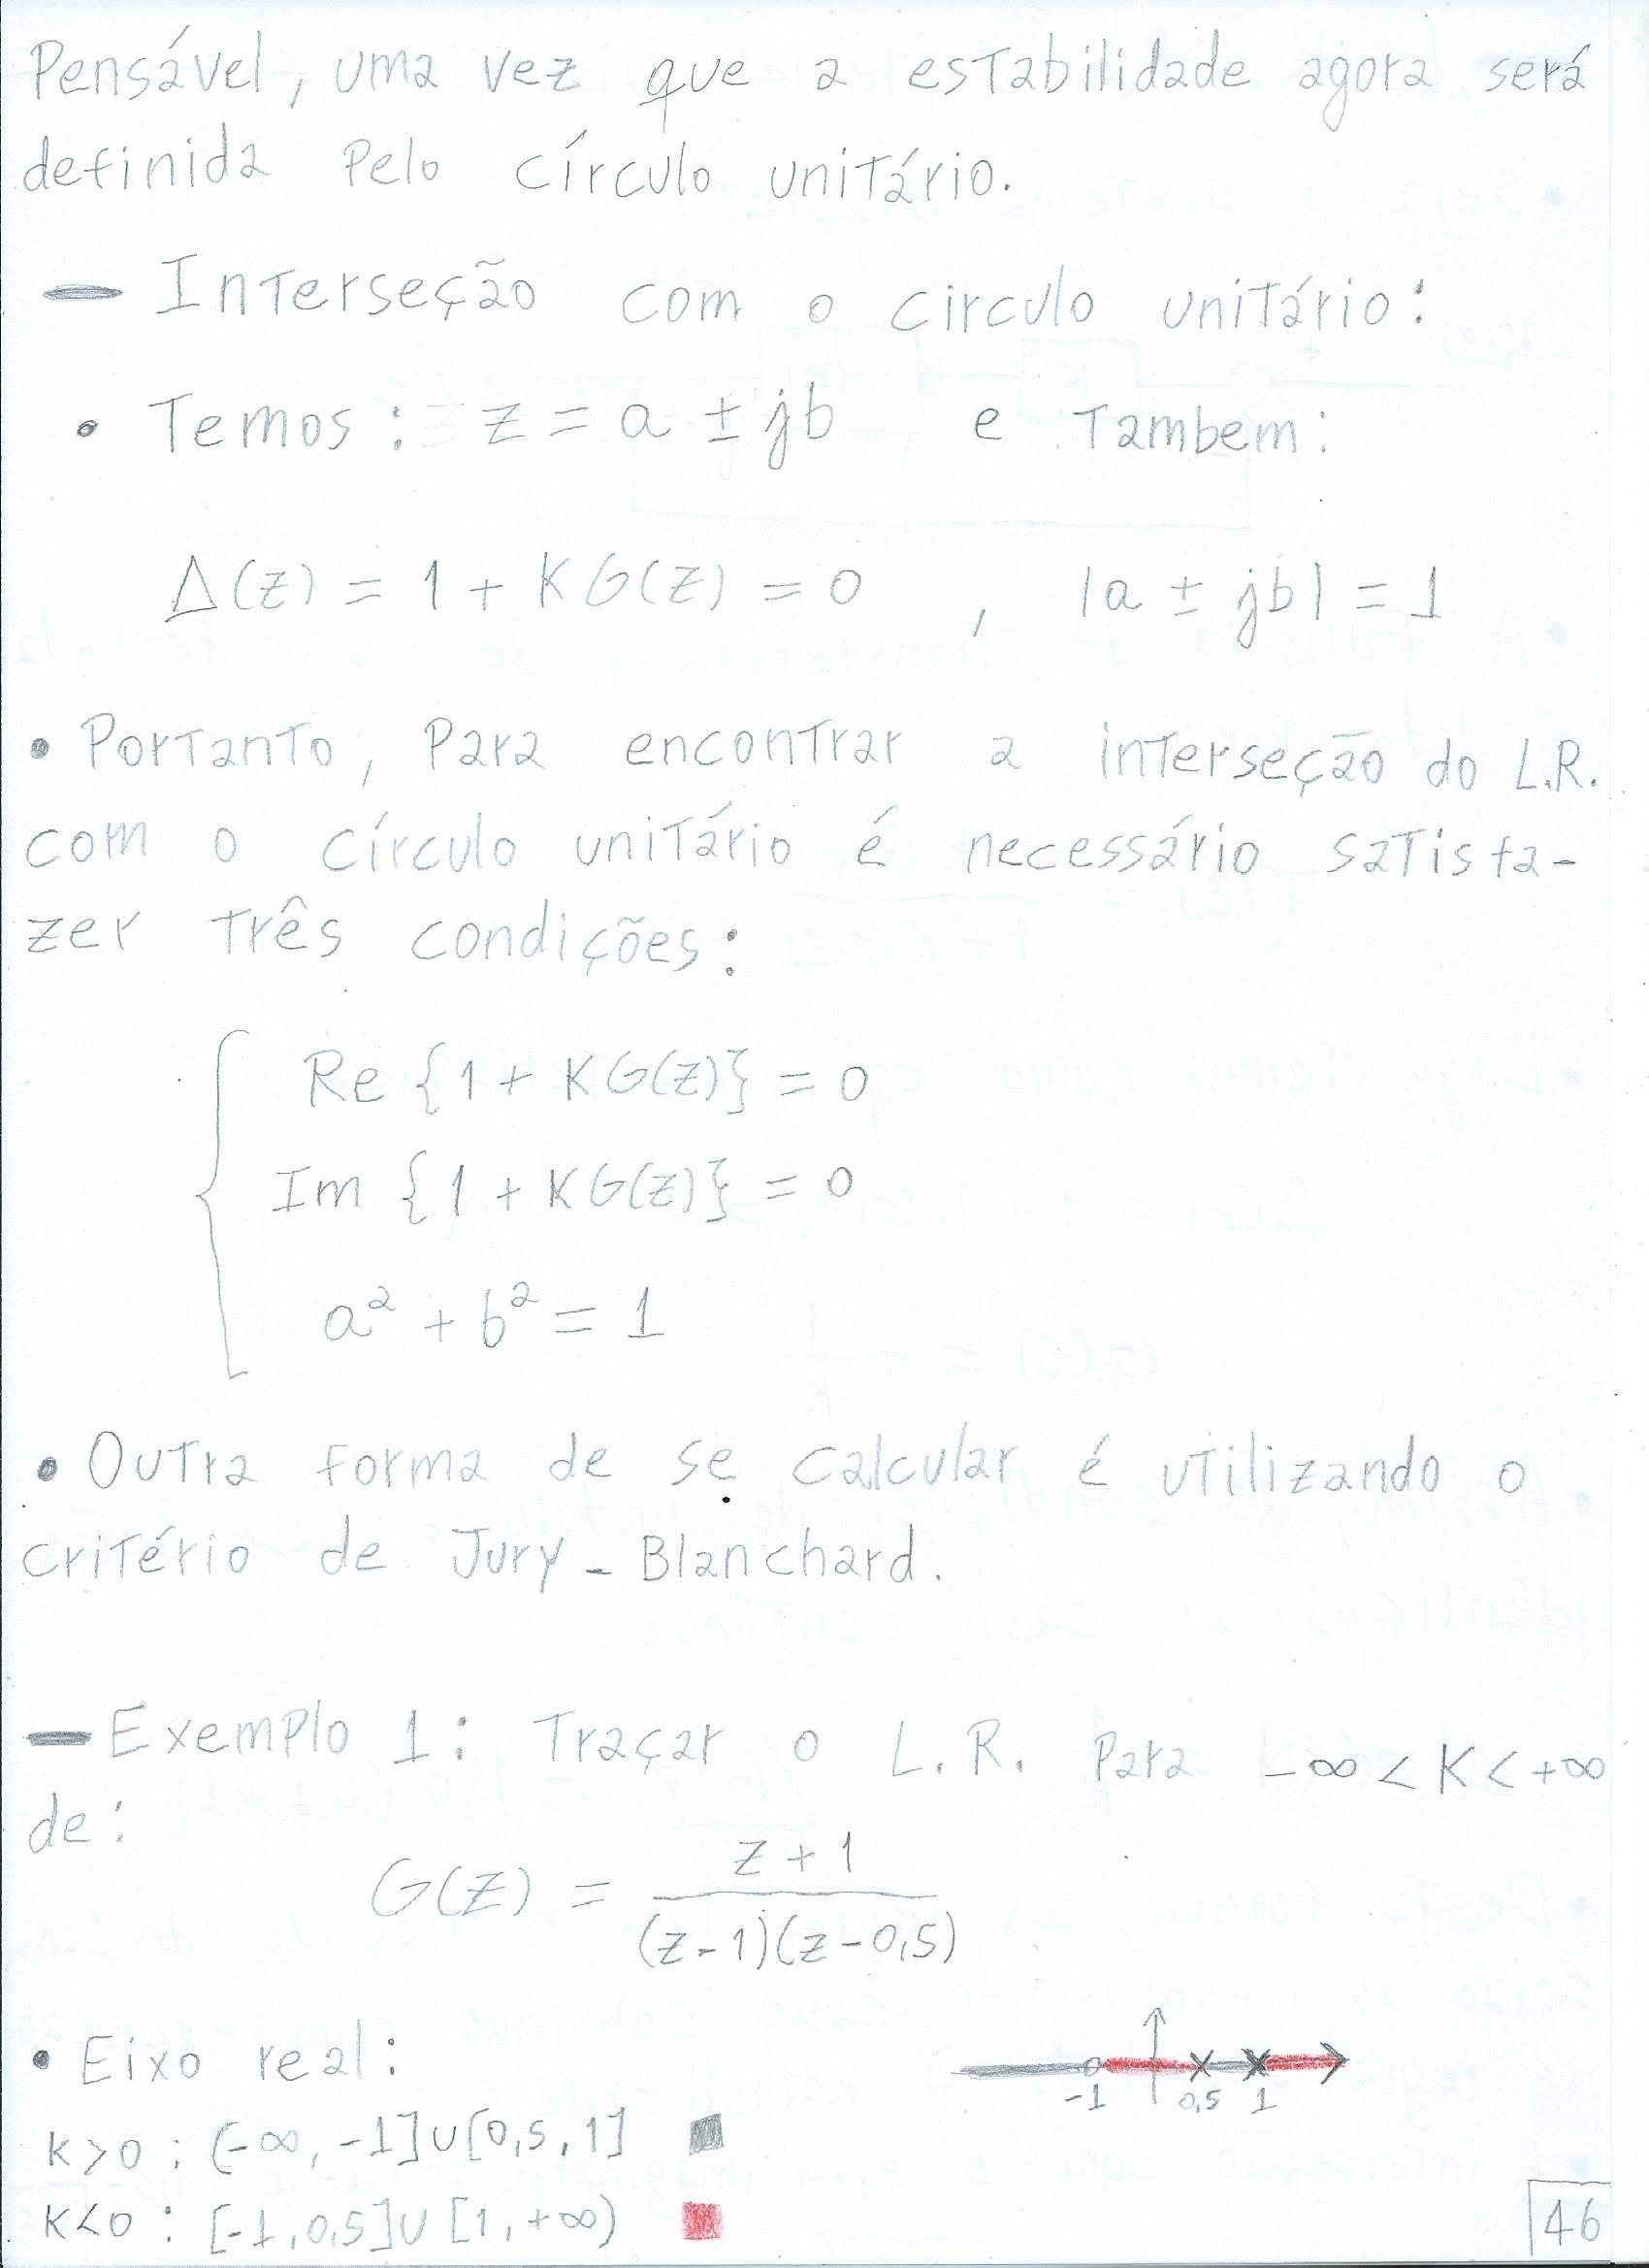 Pensável, uma vez que a estabilidade agora será
definida pelo círculo unitário.
— Interseção com o circulo unitário:
• Temos: z = a ± jb e Tambem:
Δ(z) = 1 + KG(z) = 0 , |a ± jb| = 1
• Portanto, para encontrar a interseção do L.R.
com o círculo unitário é necessário satisfa-
zer três condições:
Re {1 + KG(z)} = 0
Im {1 + KG(z)} = 0
a² + b² = 1
• Outra forma de se calcular é utilizando o
critério de Jury-Blanchard.
— Exemplo 1: Traçar o L.R. para -∞ < K < +∞
de:
G(z) = z + 1
(z-1)(z-0,5)
• Eixo real:
-1 0,5 1
K>0 : (-∞, -1]∪[0,5, 1]
K<0 : [-1, 0,5]∪[1, +∞)
46